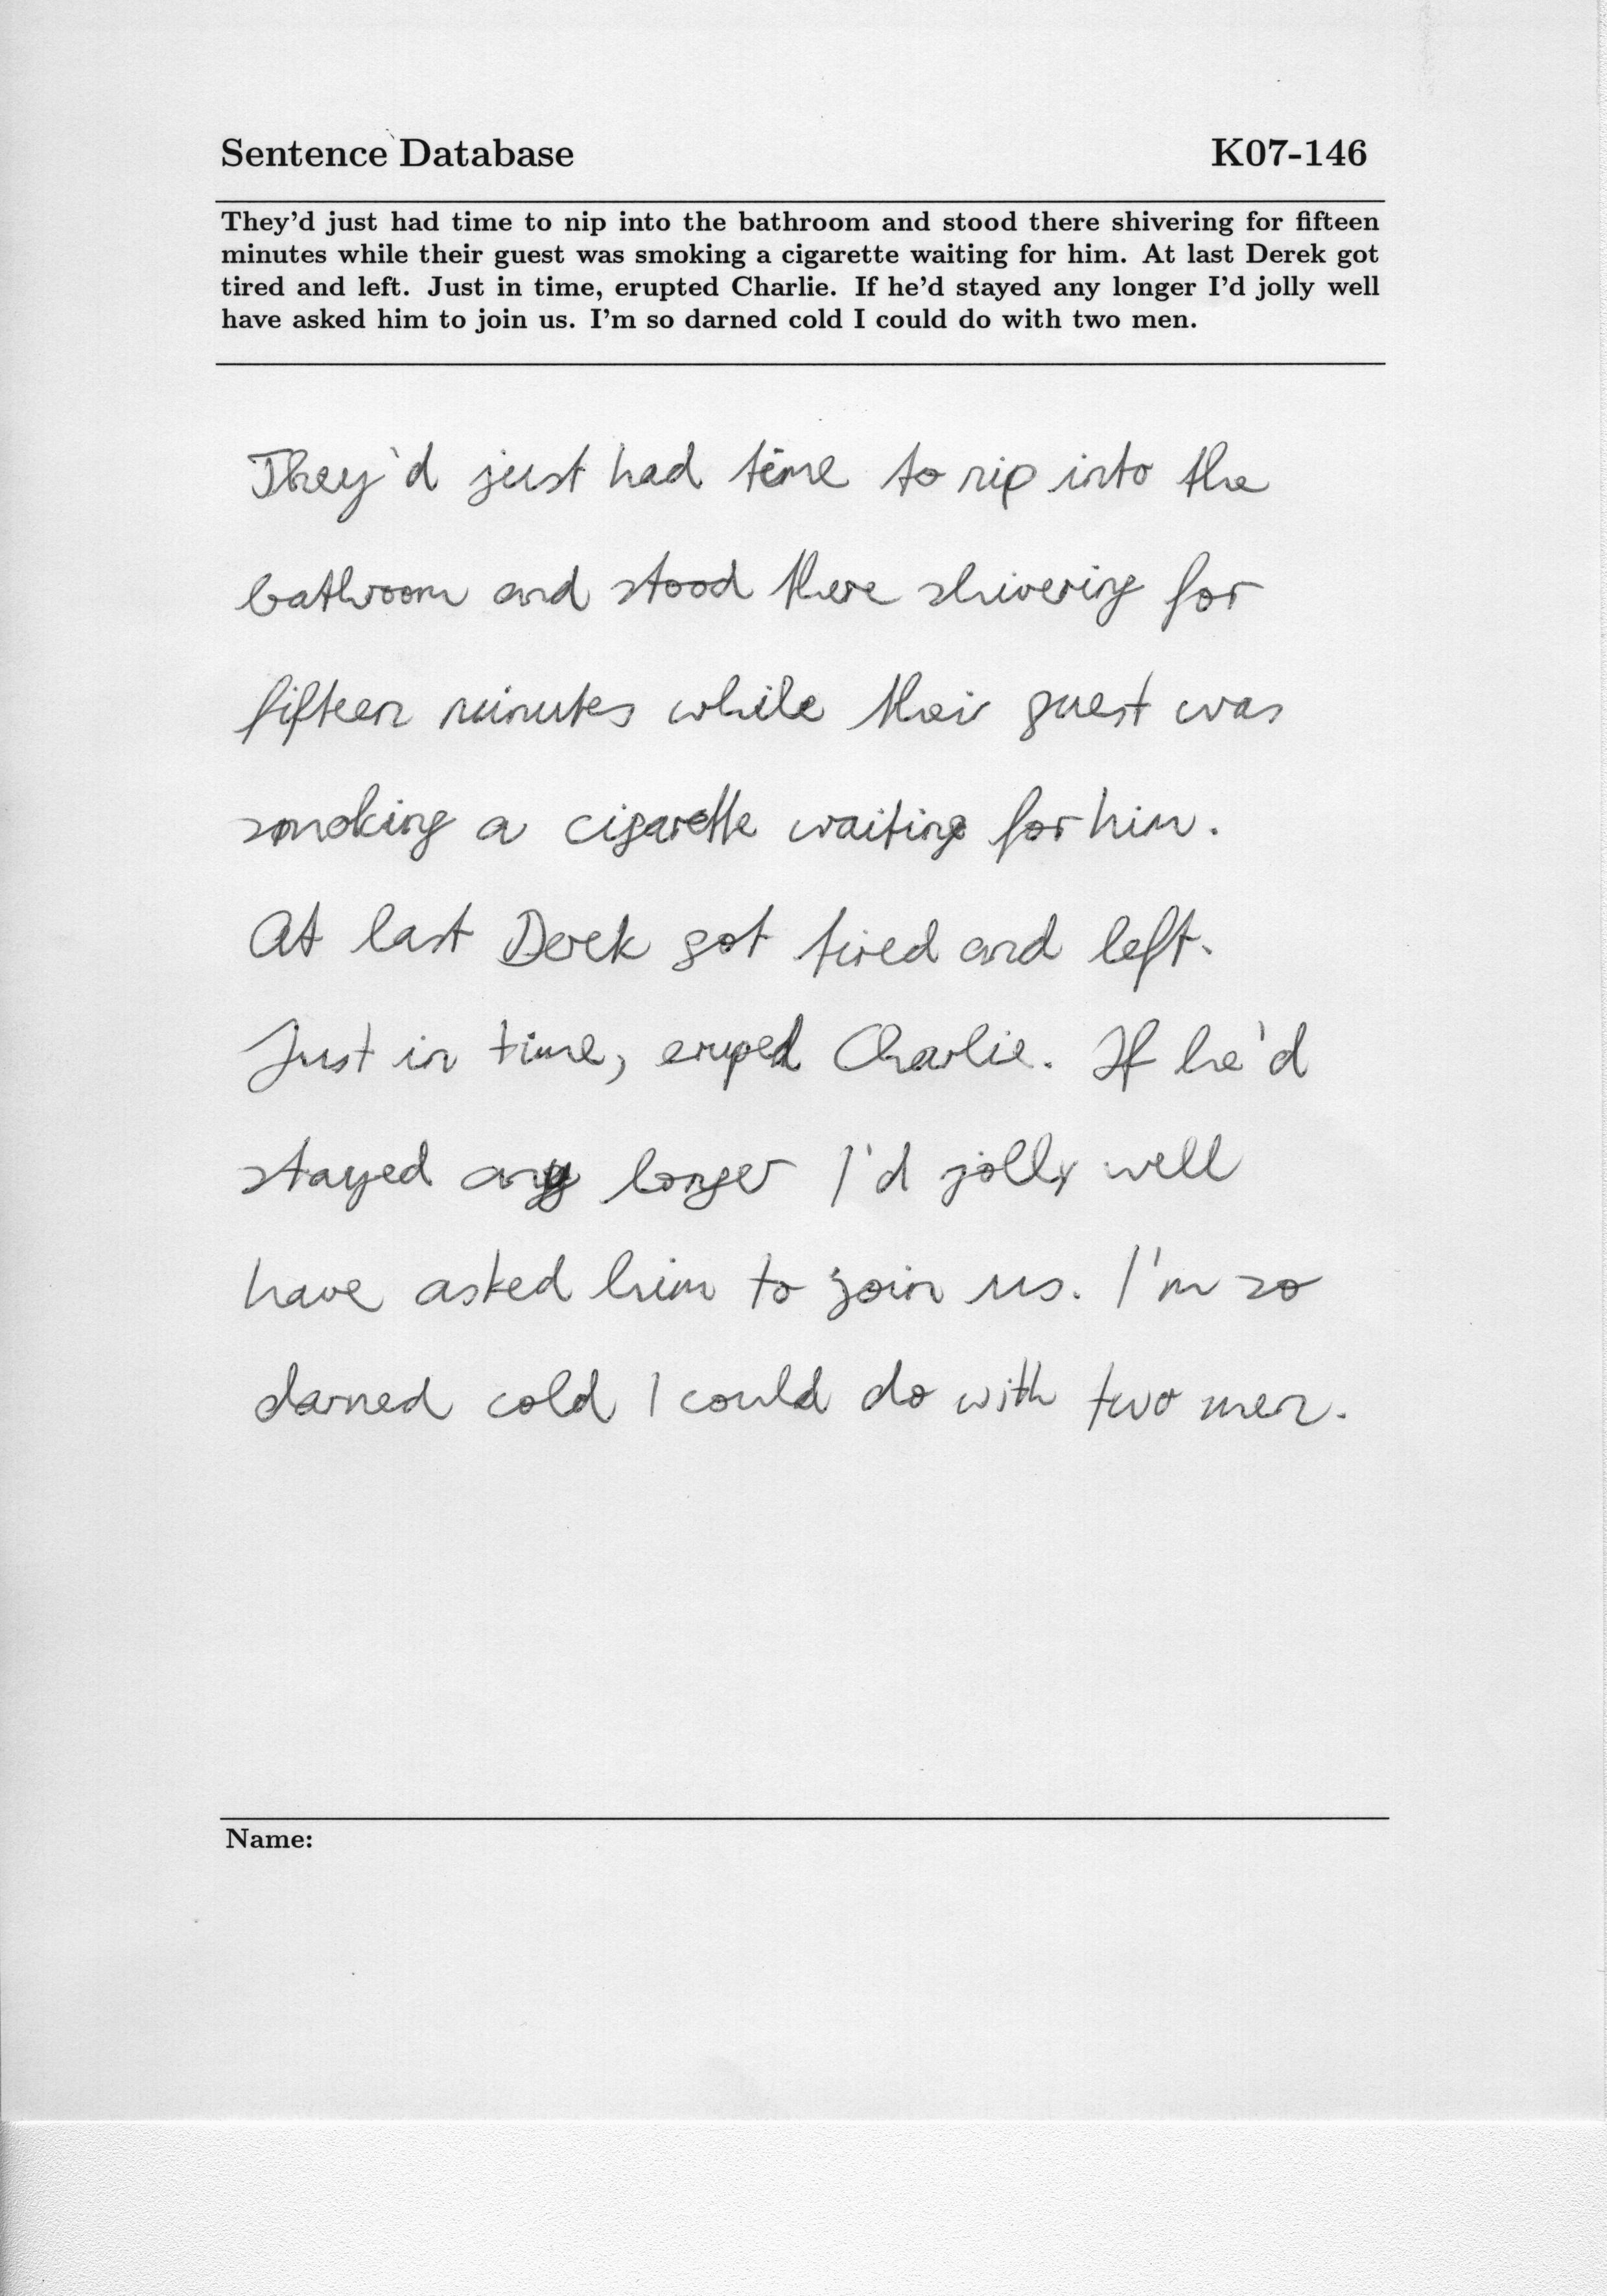 Sentence Database K07-146
They'd just had time to nip into the bathroom and stood there shivering for fifteen
minutes while their guest was smoking a cigarette waiting for him. At last Derek got
tired and left. Just in time, erupted Charlie. If he'd stayed any longer I'd jolly well
have asked him to join us. I'm so darned cold I could do with two men.
They'd just had time to nip into the
bathroom and stood there shivering for
fifteen minutes while their guest was
smoking a cigarette waiting for him.
At last Derek got tired and left.
Just in time, eruped Charlie. If he'd
stayed any longer I'd jolly well
have asked him to join us. I'm so
darned cold I could do with two men.
Name: